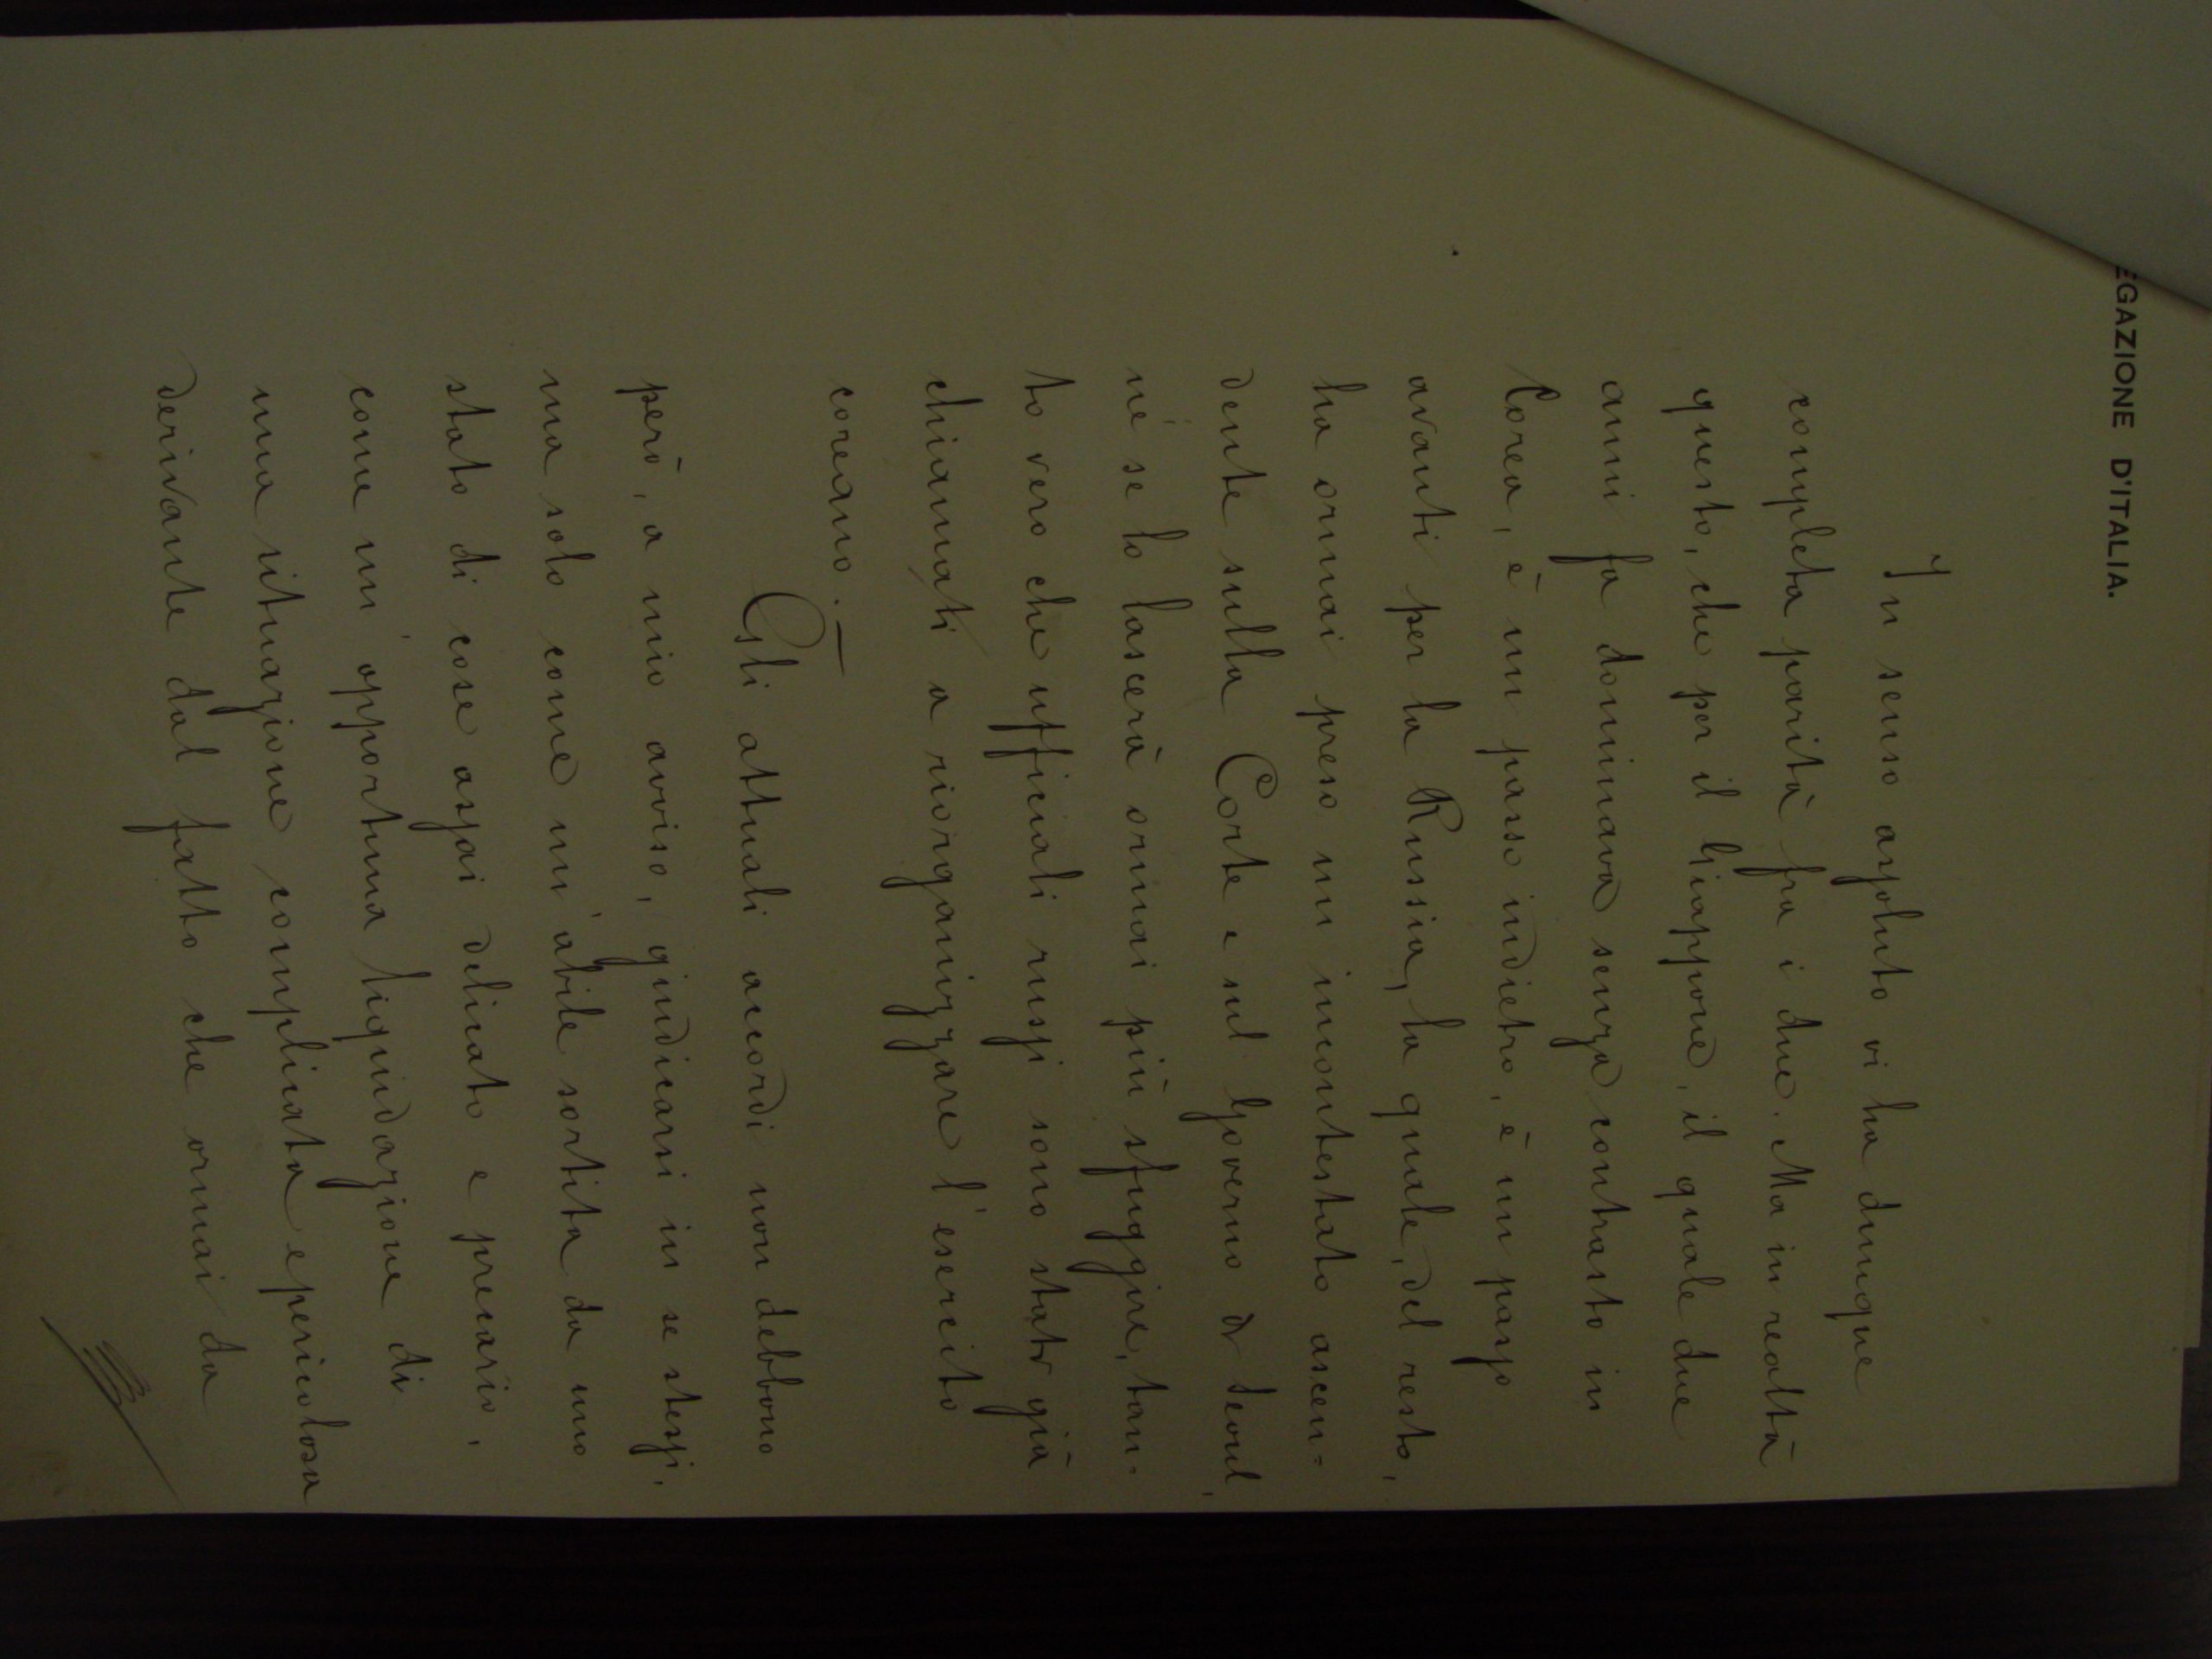 EGAZIONE D'ITALIA.
In senso assoluto vi ha dunque
completa parità fra i due. Ma in realtà
questo, che per il Giappone, il quale due
anni fa dominava senza contrasto in
Corea, è un passo indietro, è un passo
avanti per la Russia, la quale, del resto,
ha ormai preso un incontestato ascen=
dente sulla Corte e sul Governo di Seoul,
nè se lo lascerà ormai più sfuggire, tan=
to vero che ufficiali russi sono stati già
chiamati a riorganizzare l'esercito
coreano. —
Gli attuali accordi non debbono
però, a mio avviso, giudicarsi in se stessi,
ma solo come un'abile sortita da uno
stato di cose assai delicato e precario,
come un'opportuna liquidazione di
una situazione complicata e pericolosa
derivante dal fatto che ormai da